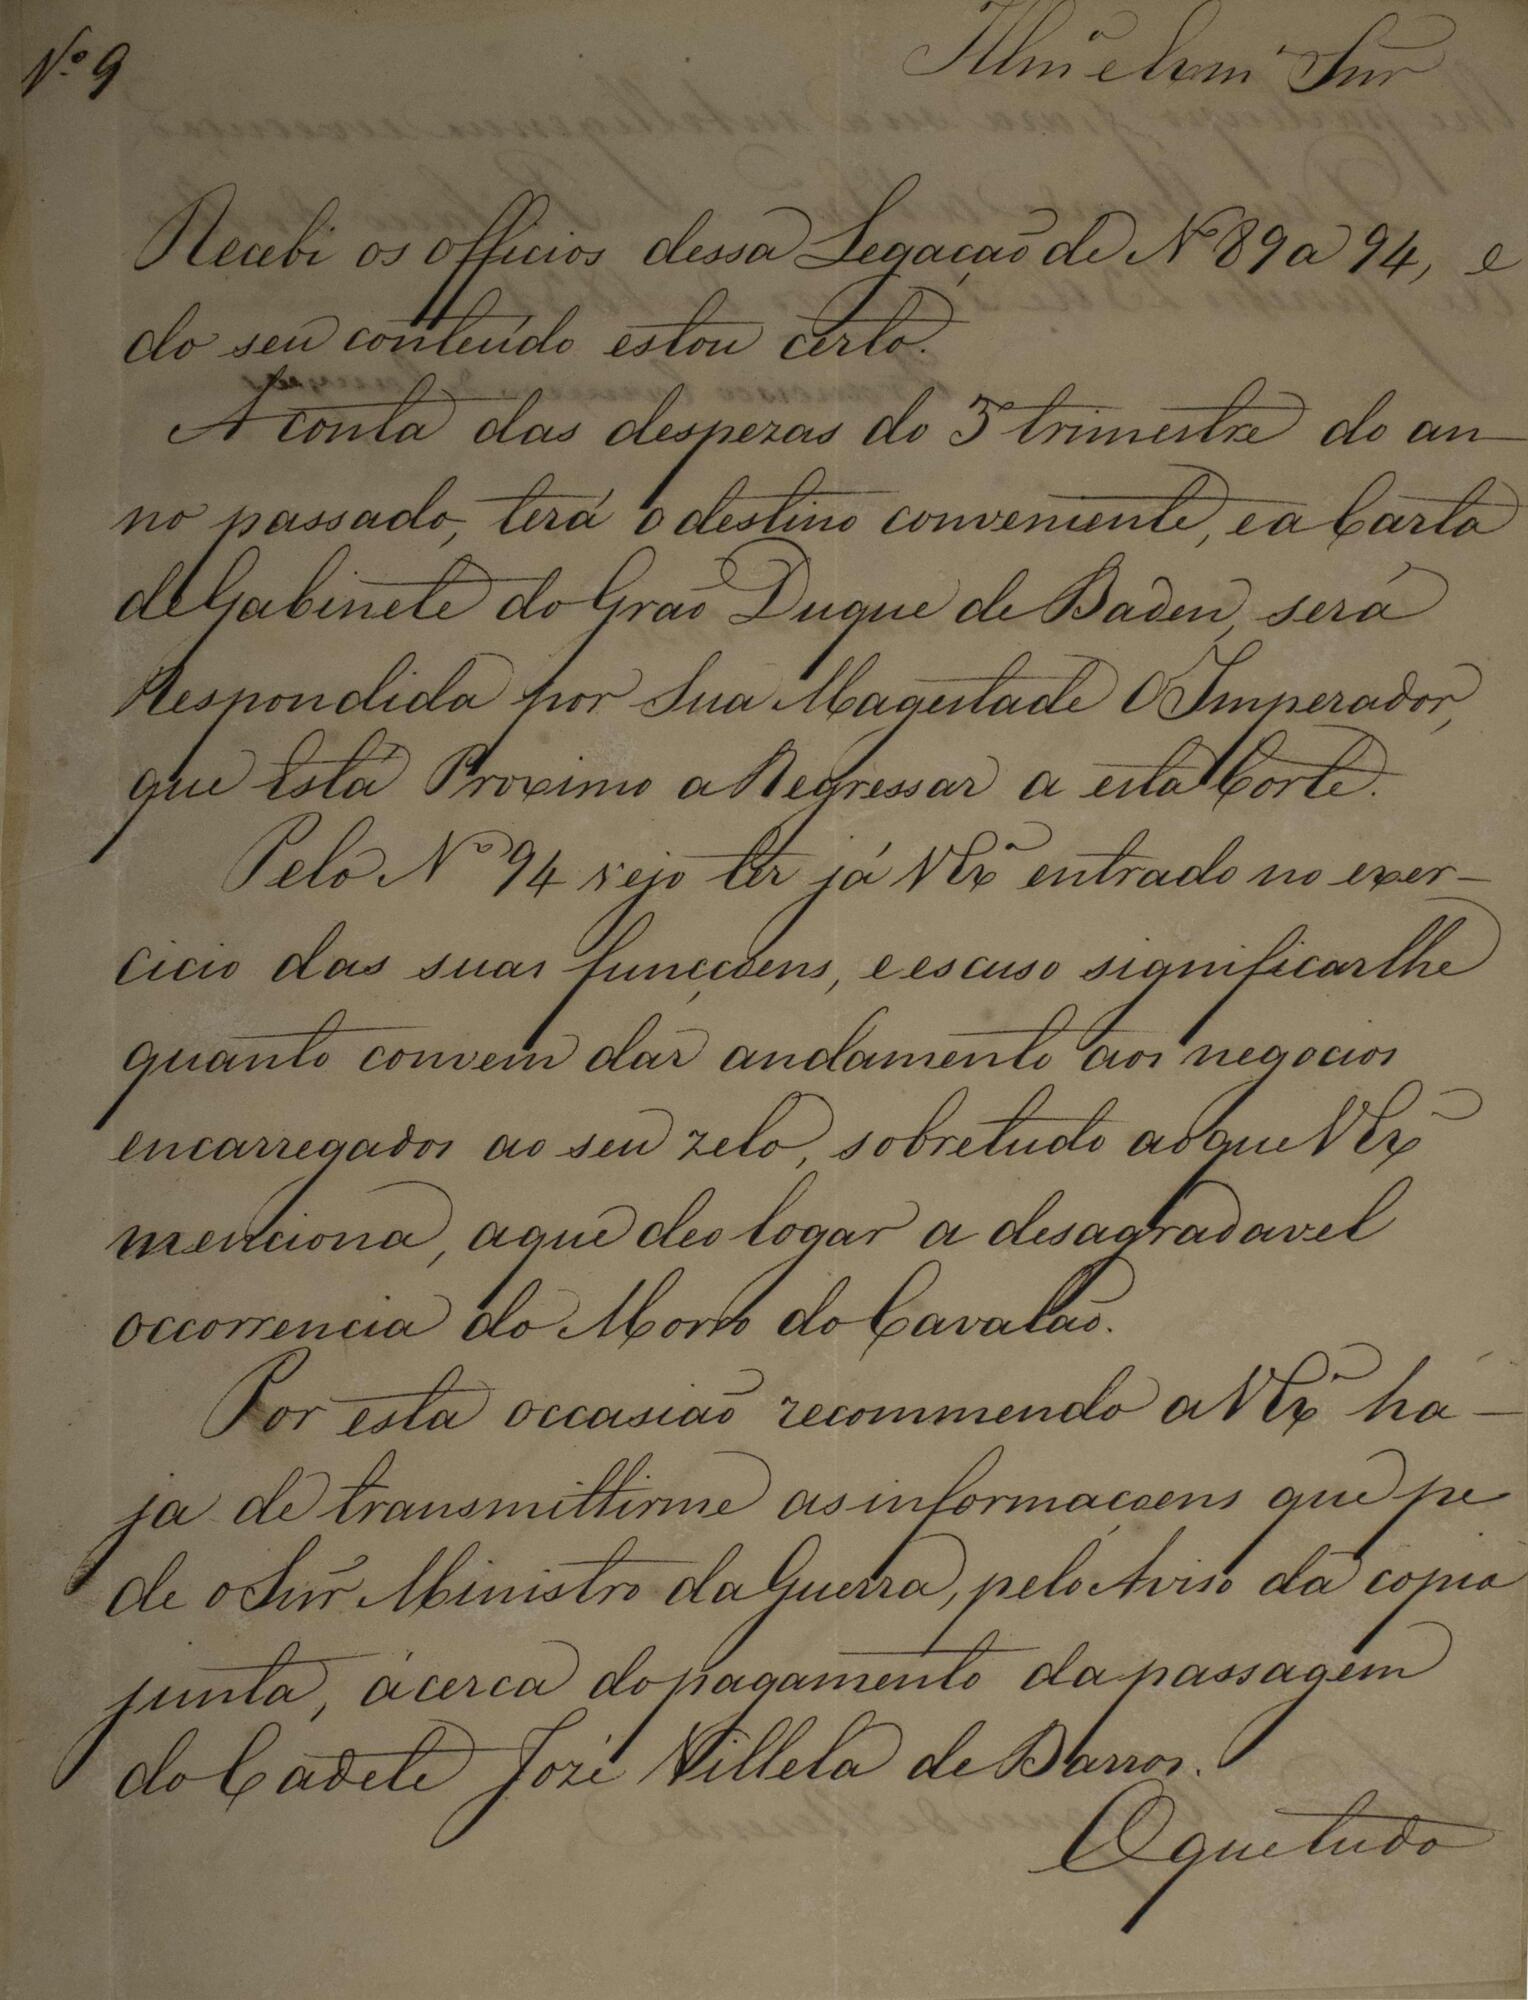 Nº 9
Illmº e Exmº Snr
Recebi os officios dessa Legação de Nº 89 a 94, e
do seu conteúdo estou certo.
A conta das despezas do 3º trimestre do an-
no passado, terá o destino conveniente, e a Carta
de Gabinete do Grão Duque de Baden, será
Respondida por Sua Magestade O Imperador,
que Está Proximo a Regressar a esta Corte.
Pelo Nº 94 vejo ter já V Exª entrado no exer-
cicio das suas funcçoens, e escuso significarlhe
quanto convem dar andamento aos negocios
encarregados ao seu zelo, sobretudo ao que V Exª
menciona, a que deo logar a desagradavel
occorrencia do Morro do Cavalão.
Por esta occasião recommendo a V Exª há-
ja de transmittirme as informaçoens que pe
de o Snr Ministro da Guerra, pelo Aviso da copia
junta, ácerca do pagamento da passagem
do Cadete Jozé Villela de Barros.
O que tudo